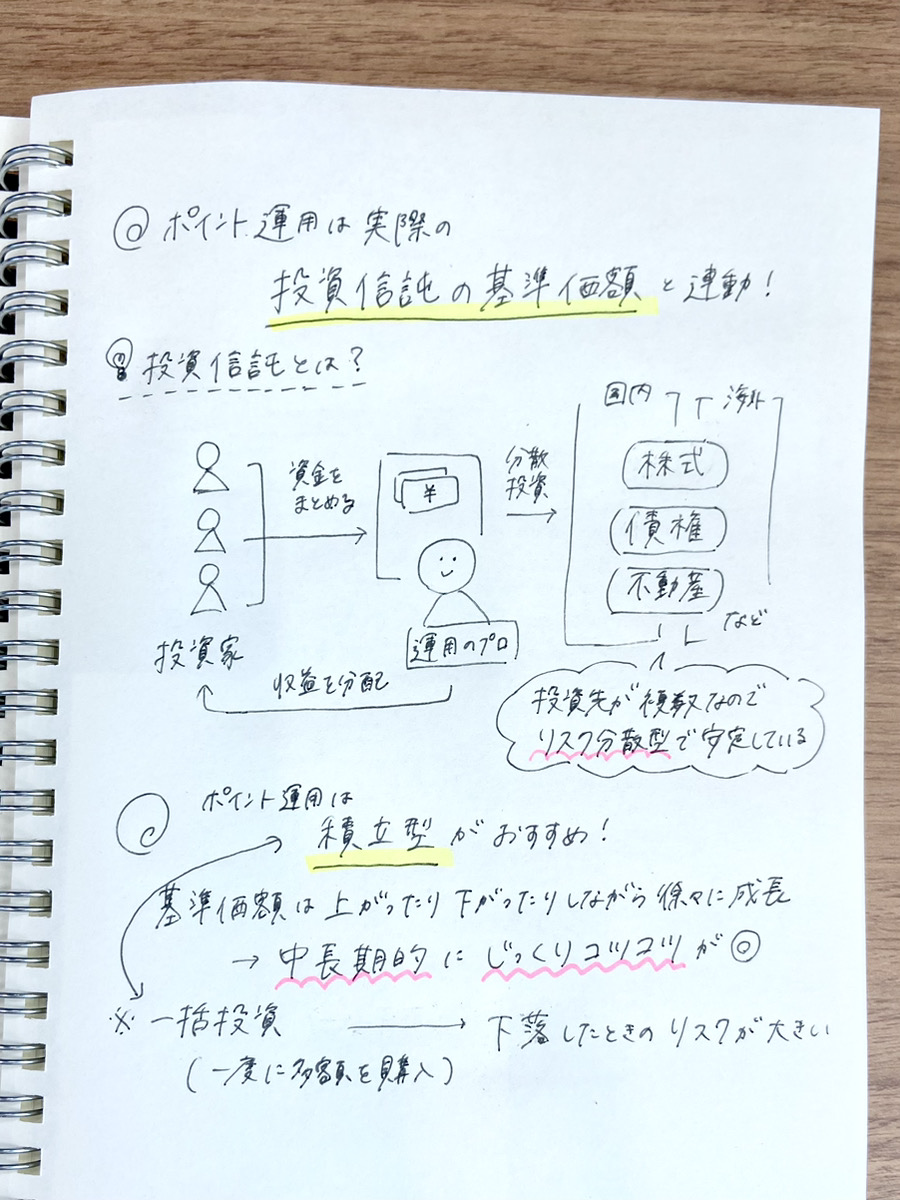 ◎ ポイント運用は実際の
投資信託の基準価額と連動！
投資信託とは？
国内 海外
資金を
まとめる
¥
分散
投資
株式
債権
不動産
など
投資家
運用のプロ
収益を分配
投資先が複数なので
リスク分散型で安定している
◎ ポイント運用は
積立型がおすすめ！
基準価額は上がったり下がったりしながら徐々に成長
→ 中長期的にじっくりコツコツが◎
※一括投資 → 下落したときのリスクが大きい
(一度に多額を購入)